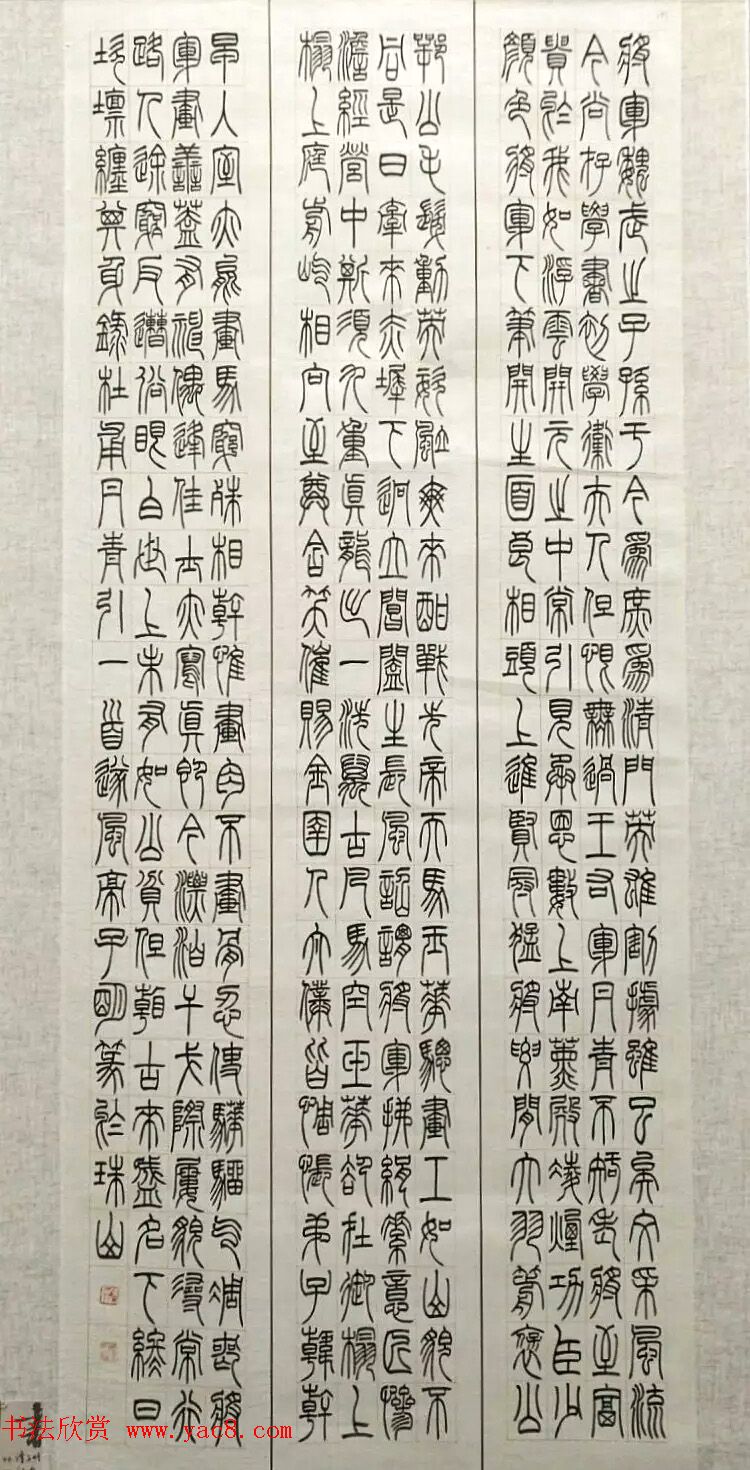 將軍魏武之子孫于今爲庶爲清門英雄割據雖已矣文采風流
今尚存學書初學衛夫人但恨無過王右軍丹青不知老將至富
貴於我如浮雲開元之中常引見承恩數上南薰殿凌煙功臣少
顏色將軍下筆開生面良相頭上進賢冠猛將腰間大羽箭褒公
鄂公毛髮動英姿颯爽來酣戰先帝天馬玉華驄畫工如山貌不
同是日牽來赤墀下迥立閶闔生長風詔謂將軍拂絹素意匠慘
澹經營中斯須九重真龍出一洗萬古凡馬空玉華卻在御榻上
榻上庭前屹相向至尊含笑催賜金圉人太僕皆惆悵弟子韓幹
早入室亦能畫馬窮殊相幹惟畫肉不畫骨忍使驊騮气凋喪將
軍畫善蓋有神偶逢佳士亦寫真即今漂泊干戈際屢貌尋常行
路人途窮反遭俗眼白世上未有如公貧但看古來盛名下終日
坎壈纏其身錄杜甫丹青引一首遂風亭子明篆於珠山
书法欣赏 www.yac8.com